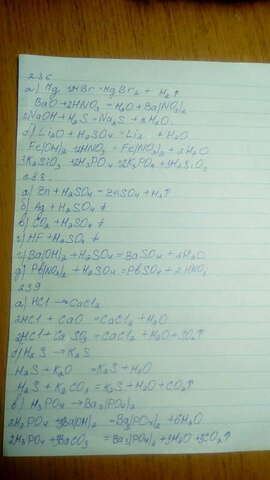 236
а) Mg 2HBr - MgBr2 + H2↑
BaO + 2HNO3 - H2O + Ba(NO3)2
2NaOH + H2S - Na2S + 2H2O.
Li2O + H2SO4 - Li2 + H2O
Fe(OH)2 + 2HNO3 - Fe(NO3)2 + 2H2O
3K2SiO3 2H3PO4 2K3PO4 + 3H2SiO3
а) Zn + H2SO4 = ZnSO4 + H2↑
б) Ag + H2SO4 ≠
в) CO2 + H2SO4 ≠
г) HF + H2SO4 ≠
Ba(OH)2 + H2SO4 = BaSO4 + 2H2O
Pb(NO3)2 + H2SO4 = PbSO4 + 2HNO3
239
а) HCl → CaCl2
2HCl + CaO = CaCl2 + H2O
2HCl + CaSO3 = CaCl2 + H2O + SO2↑
б) H2S → K2S
H2S + K2O = K2S + H2O
H2S + K2CO3 = K2S + H2O + CO2↑
в) H3PO4 → Ba3(PO4)2
2H3PO4 + 3Ba(OH)2 = Ba3(PO4)2 + 6H2O
2H3PO4 + 3BaCO3 = Ba3(PO4)2 + 3H2O + 3CO2↑